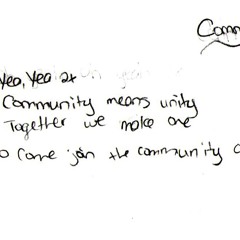 Comm
Yea, Yea 2x
Community means unity
Together we make one
o come join the community